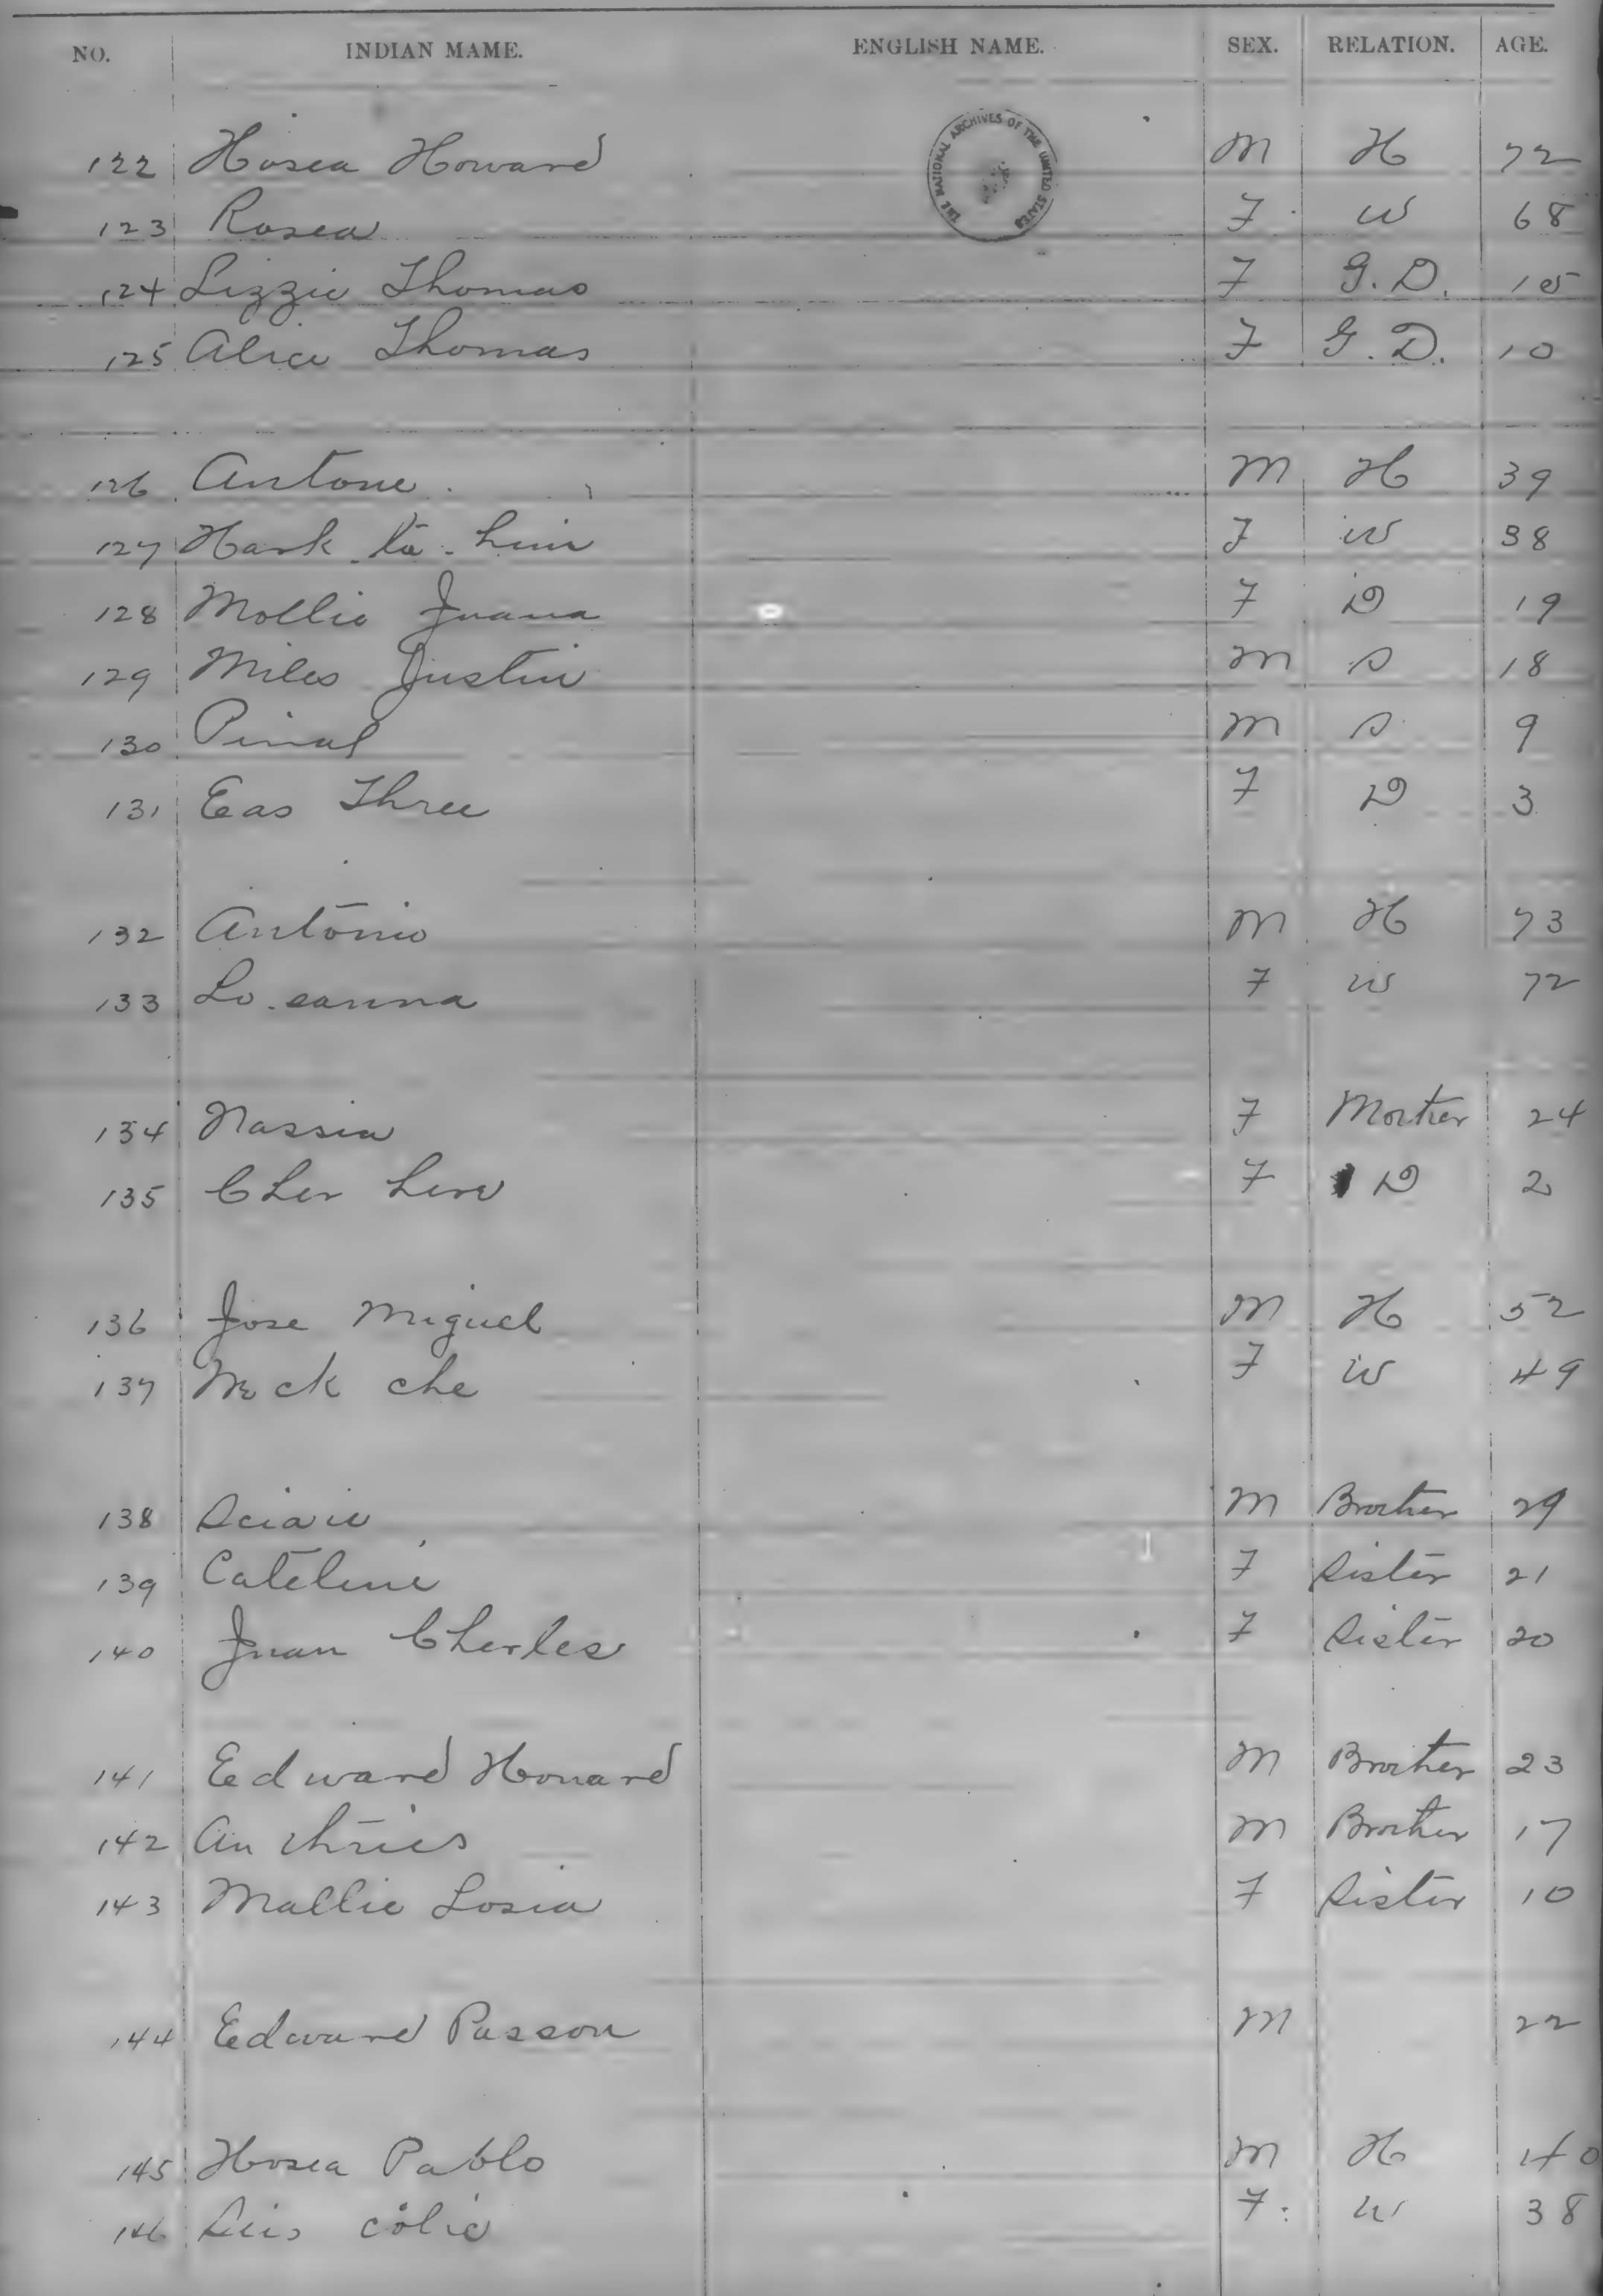 NO. INDIAN MAME. ENGLISH NAME. SEX. RELATION. AGE.
THE NATIONAL ARCHIVES OF THE UNITED STATES
122 Hosea Howard M H 72
123 Rosea F W 68
124 Lizzie Thomas F G.D. 15
125 Alice Thomas F G.D. 10
126 Antone M H 39
127 Hark-ta-him F W 38
128 Mollie Juana F D 19
129 Miles Justin M S 18
130 Pinal M S 9
131 Eas Three F D 3
132 Antonio M H 73
133 Lo-eanna F W 72
134 Nassia F Mother 24
135 Cher F D 2
136 Jose Miguel M H 52
137 ck che F W 49
138 M Brother 29
139 Cateline F Sister 21
140 Juan Cherles F Sister 20
141 Edward Howard M Brother 23
142 An thries M Brother 17
143 Mallie Losia F Sister 10
144 Edward Passon M 22
145 Hosea Pablo M H 40
146 colic F W 38